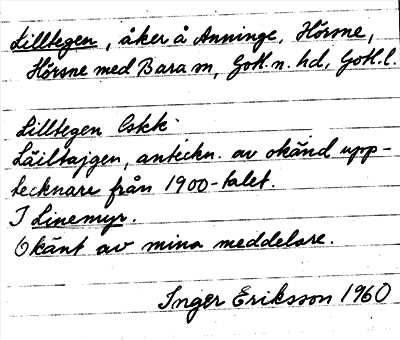 Lilltegen, åker å Anninge, Hörsne,
Hörsne med Bara sn, Gotl. n. hd, Gotl. l.
Lilltegen Eskk
Läiltajgen, anteckn. av okänd upp-
tecknare från 1900-talet.
I Linemyr.
Okänt av mina meddelare.
Inger Eriksson 1960